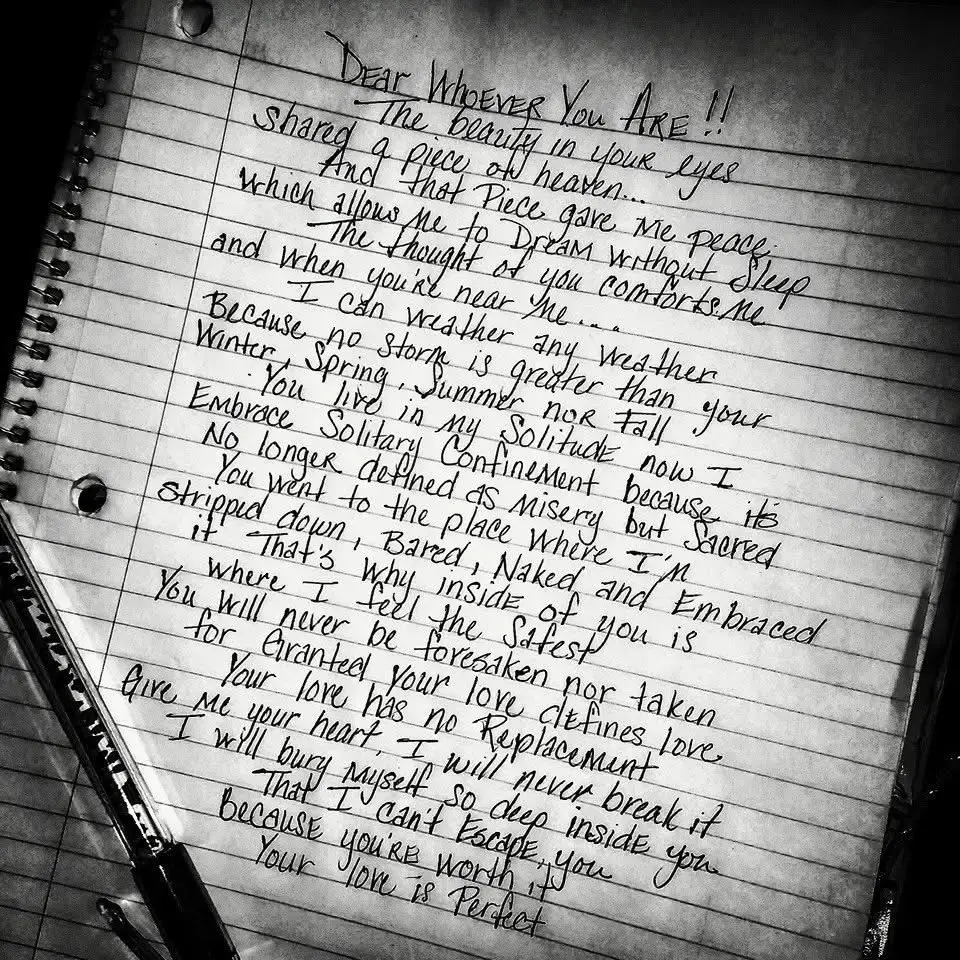 Dear Whoever You Are!!
The beauty in your eyes
Shared a piece of heaven...
And that Piece gave me peace,
which allows me to Dream without Sleep
The thought of you comforts me
and when you're near Me....
I can weather any weather
Because no storm is greater than your
Winter, Spring, Summer nor Fall
You live in my Solitude now I
Embrace Solitary Confinement because it's
No longer defined as Misery but Sacred
You went to the place Where I'm
Stripped down, Bared, Naked and Embraced
it That's why inside of you is
where I feel the Safest
You will never be foresaken nor taken
for Granted your love defines Love
Your love has no Replacement
Give Me your heart, I will never break it
I will bury Myself so deep inside you
That I can't Escape, you
Because you're worth it
Your love is Perfect